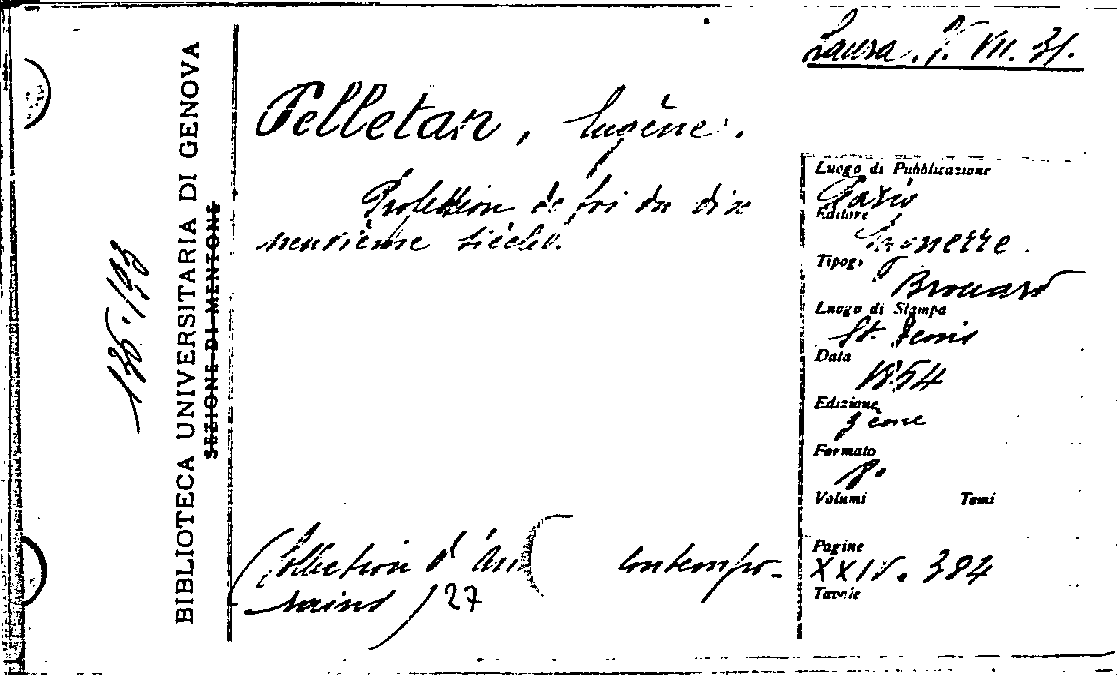 Laura. P. VII. 31.
BIBLIOTECA UNIVERSITARIA DI GENOVA
SEZIONE DI MENTONE
Pelletan, Eugène.
Profession de foi du dix
neuvième siècle.
Luogo di Pubblicazione
Paris
Editore
Pagnerre.
Tipogr
Brouard
Luogo di Stampa
St. Denis
Data
1854
Edizione
3ème
Formato
8°
Volumi Tomi
Pagine
XXIV. 384
Tavole
(Collection d' contempo-
rains) 27